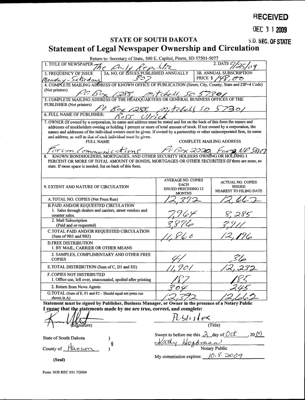 RECEIVED
DEC 31 2009
S.D. SEC. OF STATE
STATE OF SOUTH DAKOTA
Statement of Legal Newspaper Ownership and Circulation
Return to: Secretary of State, 500 E. Capitol, Pierre, SD 57501-5077
1. TITLE OF NEWSPAPER The Daily Republic
2. DATE
3. FREQUENCY OF ISSUE Monday - Saturday
3A. NO. OF ISSUES PUBLISHED ANNUALLY 307
3B. ANNUAL SUBSCRIPTION PRICE
4. COMPLETE MAILING ADDRESS OF KNOWN OFFICE OF PUBLICATION (Street, City, County, State and ZIP+4 Code) (Not printers)
PO Box 1288 Mitchell SD 57301
5. COMPLETE MAILING ADDRESS OF THE HEADQUARTERS OR GENERAL BUSINESS OFFICES OF THE PUBLISHER (Not printers)
PO Box 1288 Mitchell SD 57301
6. FULL NAME OF PUBLISHER:
7. OWNER (If owned by a corporation, its name and address must be stated and list on the back of this form the names and addresses of stockholders owning or holding 1 percent or more of total amount of stock. If not owned by a corporation, the names and addresses of the individual owners must be given. If owned by a partnership or other unincorporated firm, its name and address, as well as that of each individual must be given.)
FULL NAME
COMPLETE MAILING ADDRESS
Forum Communications
8. KNOWN BONDHOLDERS, MORTGAGEES, AND OTHER SECURITY HOLDERS OWNING OR HOLDING 1 PERCENT OR MORE OF TOTAL AMOUNT OF BONDS, MORTGAGES OR OTHER SECURITIES (If there are none, so state. If more space is needed, list on back of this form.
9. EXTENT AND NATURE OF CIRCULATION
AVERAGE NO. COPIES EACH ISSUED PRECEDING 12 MONTHS
ACTUAL NO. COPIES ISSUED NEAREST TO FILING DATE
A. TOTAL NO. COPIES (Net Press Run) 12,392 12,662
B. PAID AND/OR REQUESTED CIRCULATION
1. Sales through dealers and carriers, street vendors and counter sales. 7,964 8,285
2. Mail Subscription (Paid and or requested) 3,896 3,911
C. TOTAL PAID AND/OR REQUESTED CIRCULATION (Sum of 9B1 and 9B2) 11,860 12,196
D. FREE DISTRIBUTION
1. BY MAIL, CARRIER OR OTHER MEANS
2. SAMPLES, COMPLIMENTARY AND OTHER FREE COPIES 41 36
E. TOTAL DISTRIBUTION (Sum of C, D1 and D2) 11,901 12,232
F. COPIES NOT DISTRIBUTED
1. Office use, left over, unaccounted, spoiled after printing 187 185
2. Return from News Agents 304 245
G. TOTAL (Sum of E, F1 and F2 - Should equal net press run shown in A) 12,392 12,662
Statement must be signed by Publisher, Business Manager, or Owner in the presence of a Notary Public
I swear that the statements made by me are true, correct, and complete:
Publisher
(Signature)
(Title)
State of South Dakota )
County of )
(Seal)
Sworn to before me this 2 day of Oct 2009
Notary Public
My commission expires: